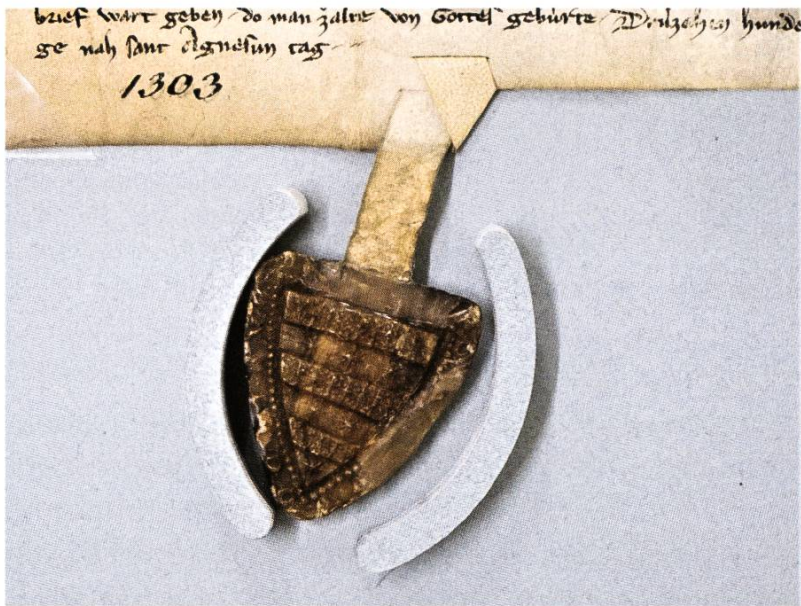 brief wart geben do man zalte von Gottes gebúrte Drúzehen hunde
ge nah sant Agnesun tag
1303